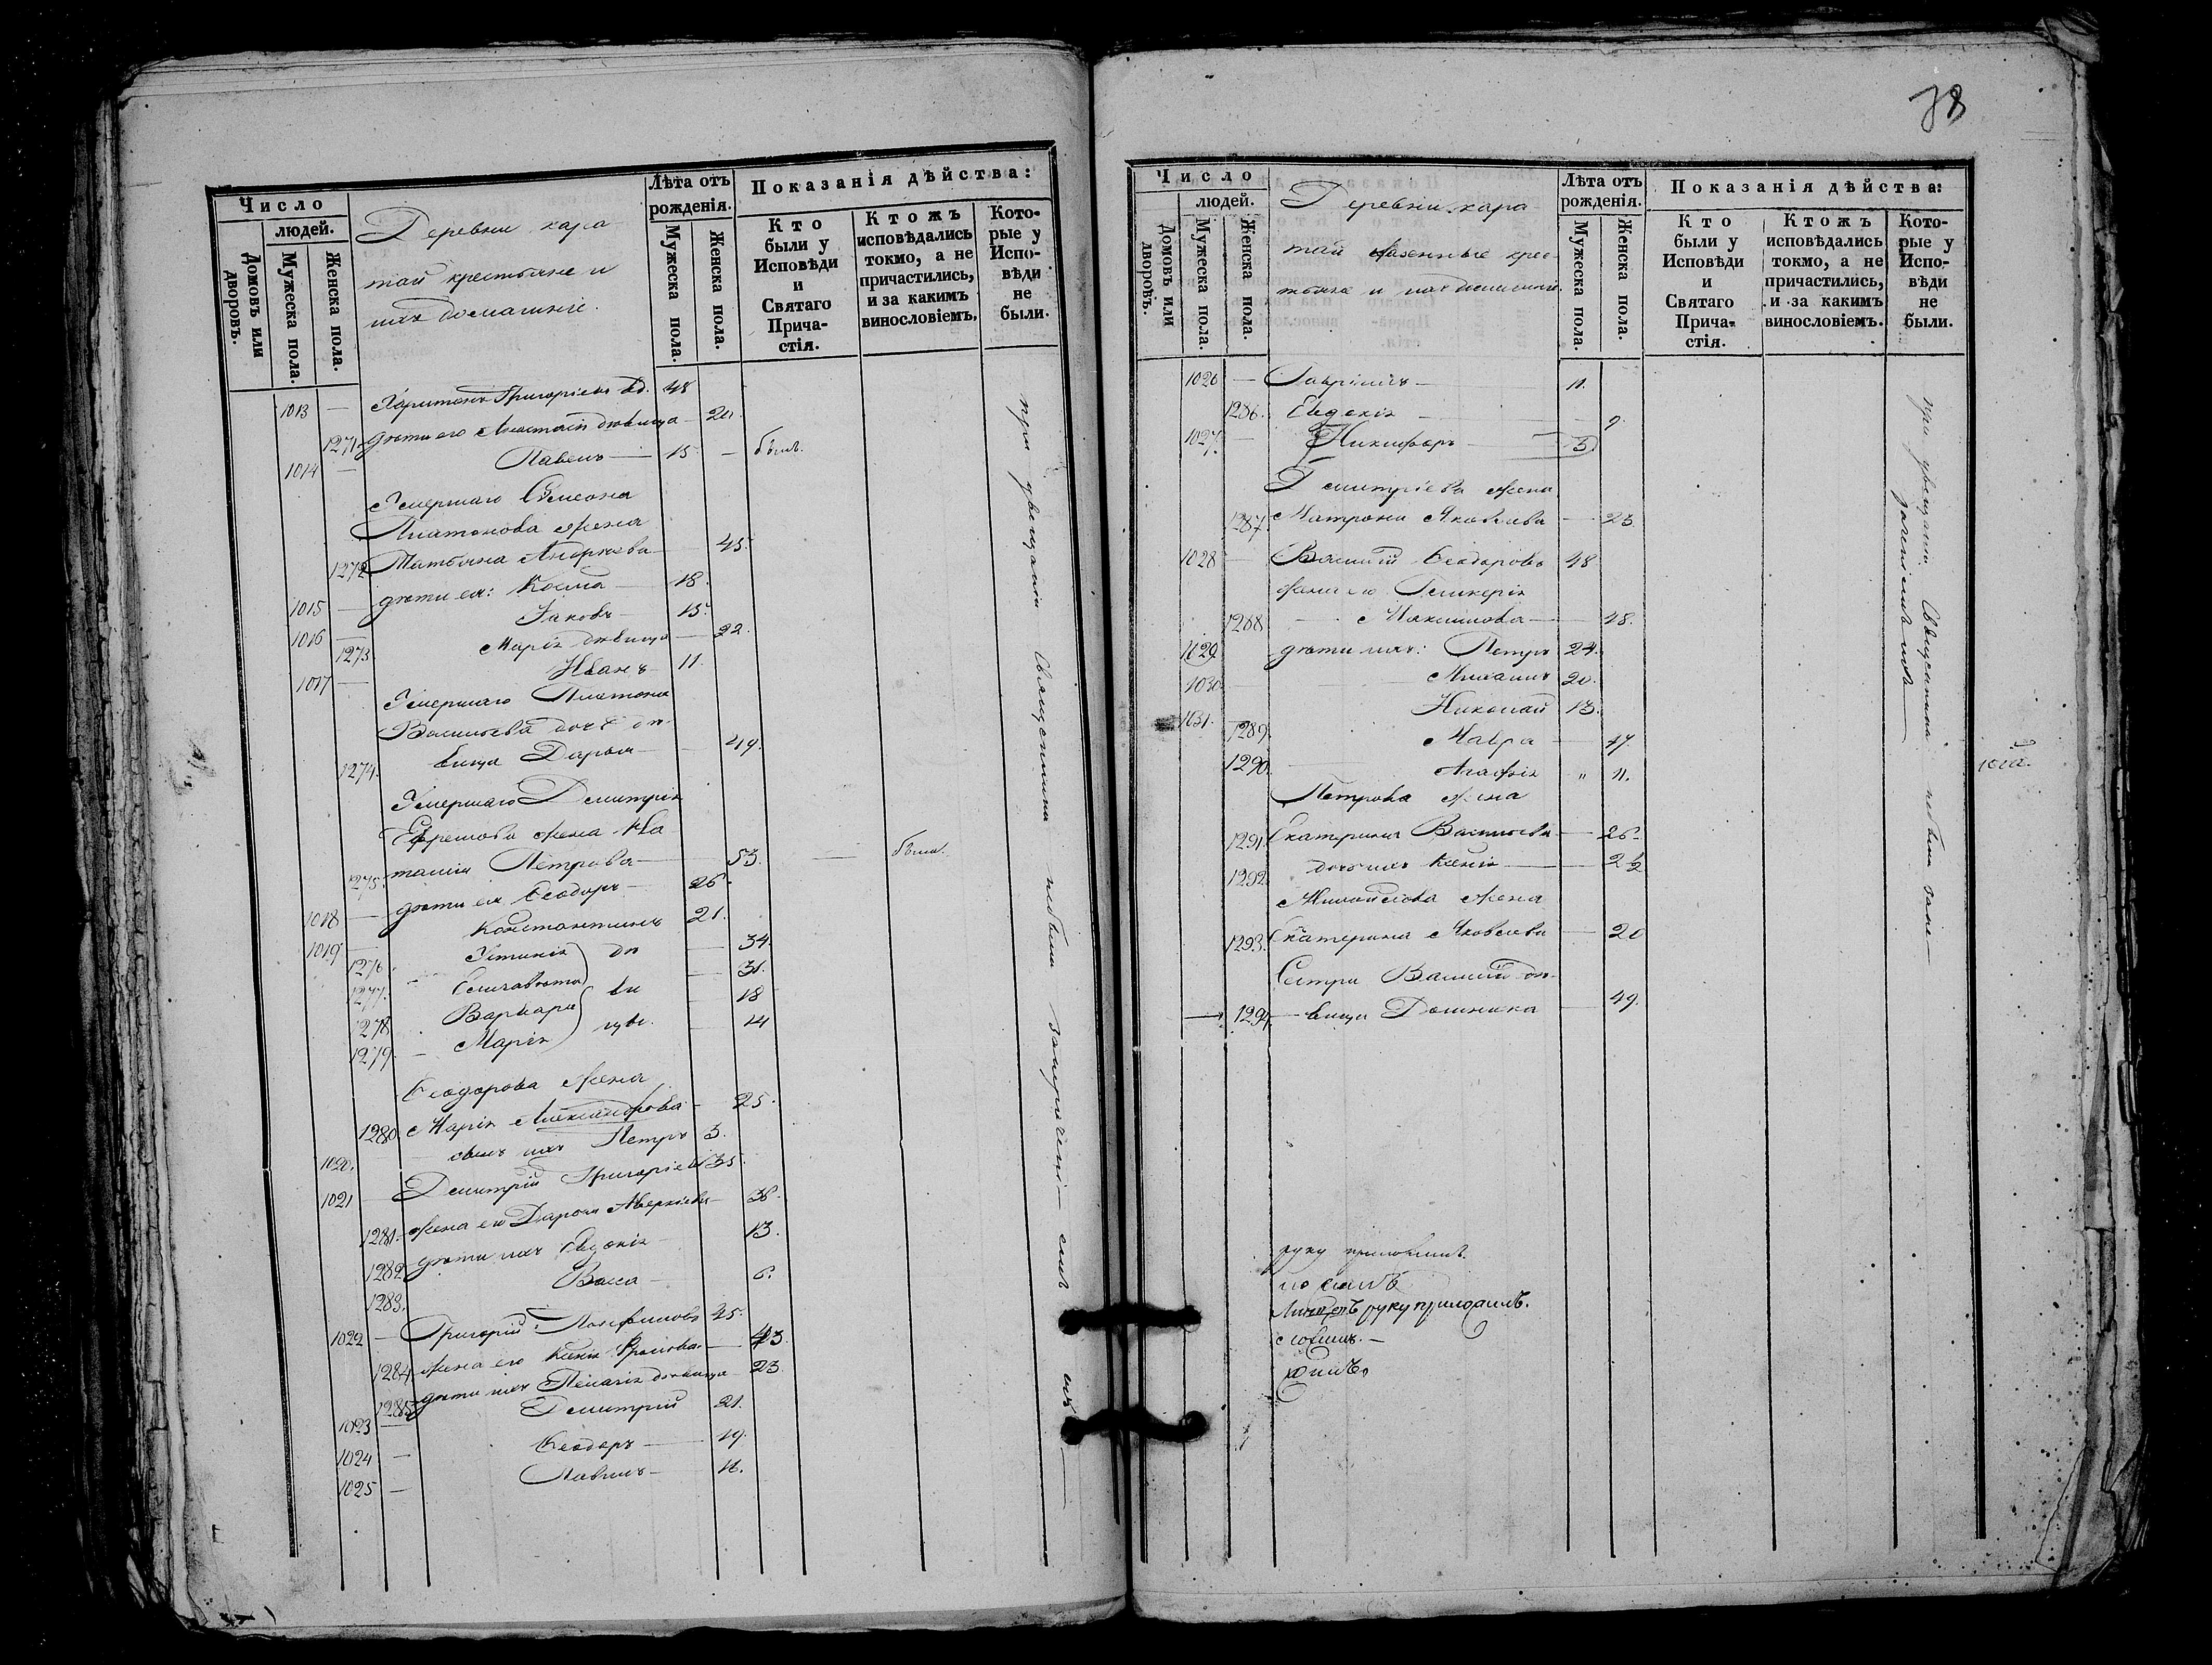 Число
людей.
Домовъ или дворовъ.
Мужеска пола.
Женска пола.
Деревни кара
тай крестьяне и
ихъ домашніе.
Лѣта отъ рожденія.
Мужеска пола.
Женска пола.
Показанія дѣйства:
Кто были у Исповѣди и Святаго Причастія.
Ктожъ исповѣдались токмо, а не причастились, и за какимъ винословіемъ.
Которые у Исповѣди не были.
1013 — Харитонъ Григоріевъ вд. 48
1271 дѣти его Анастасія дѣвица — 20.
1014 — Павелъ — 15 — былъ.
Умершаго Симеона
Платонова жена
1272 Татьяна Андреева — 45.
1015 — дѣти ея: Косма — 18.
1016 — Іаковъ — 15.
1273. Марія дѣвица — 22.
1017 — Иванъ — 11.
Умершаго Платона
Васильева дочь дѣ-
1274. вица Дарья — 49.
Умершаго Димитрія
Ефремова жена На
1275. талія Петрова — 53. — была.
1018 — дѣти ея Ѳеодоръ — 26.
1019 — Константинъ 21.
1276. Устинія дѣ — 34.
1277. Елисавета — 31.
1278 Варвара ви — 18
1279. — Марія цы. — 14
Ѳеодорова жена
1280. Марія Александрова — 25.
1020. сынъ ихъ Петръ 3.
1021 — Димитрій Григоріевъ 35.
1281. жена его Дарья Аверкіева — 36.
1282. дѣти ихъ Евдокія — 13.
1283. Васса — 6.
1022 — Григорій 45.
1284. жена его Ксенія — 43.
1285 дѣти ихъ Пелагія дѣвица — 23.
1023 — Димитрій 21.
1024 — Ѳеодоръ — 19.
1025 — Павелъ —
при увещаніи Священника небыли
78
Число
людей.
Домовъ или дворовъ.
Мужеска пола.
Женска пола.
Деревни кара
тай казенные крес
тьяне и ихъ домашніе.
Лѣта отъ рожденія.
Мужеска пола.
Женска пола.
Показанія дѣйства:
Кто были у Исповѣди и Святаго Причастія.
Ктожъ исповѣдались токмо, а не причастились, и за какимъ винословіемъ.
Которые у Исповѣди не были.
1026 — Гавріилъ — 11.
1286. Евдокія — 9.
1027. — Никифоръ — 5
Димитріева жена
1287. Матрона Яковлева — 23.
1028 — Василій Ѳеодоровъ 48
жена его Гликерія
1288 — Максимова — 48.
1029. дѣти ихъ: Петръ 24.
1030. Михаилъ 20.
1031. — Николай 13.
1289. Мавра — 17.
1290. Агафія " 11.
Петрова жена
1291. Екатерина Васильева — 26.
1292. дочь ихъ Ксенія — 2½
Михайлова жена
1293. Екатерина Яковлева — 20
Сестра Василій дѣ-
1294. — вица Домника — 49.
при увещаніи Священника небыли
руку приложилъ.
руку приложилъ.